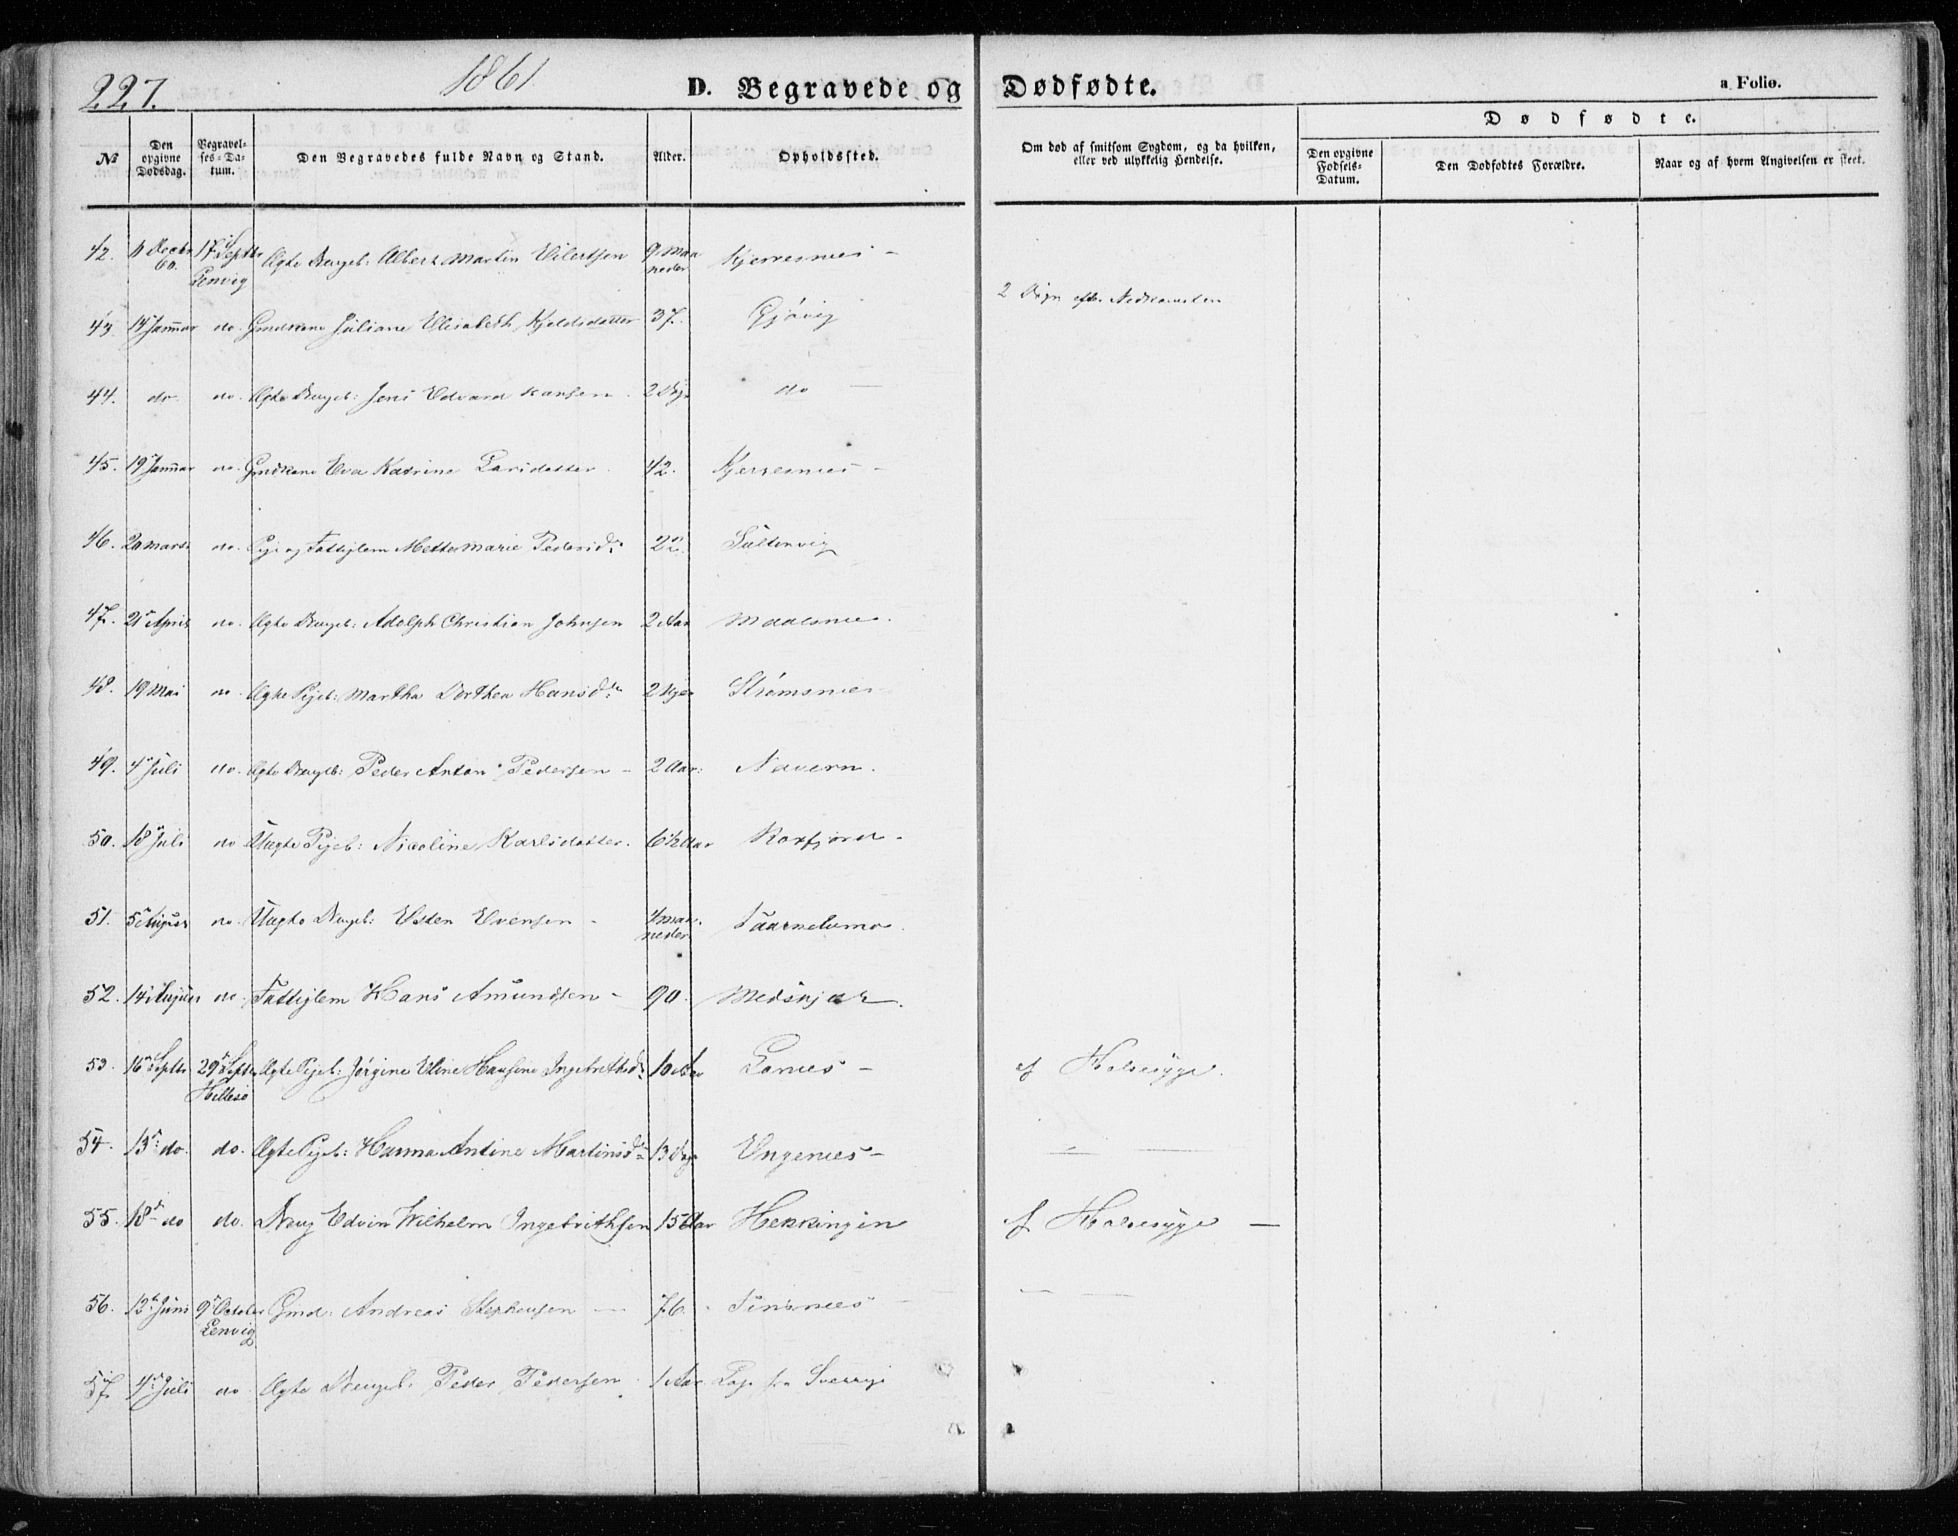 227. 1861 D. Begravede og Dødfødte. a Folio.
Dødfødte.
№ Den opgivne Dødsdag. Begravelses-Datum. Den Begravedes fulde Navn og Stand. Alder. Opholdssted. Om død af smitsom Sygdom, og da hvilken, eller ved ulykkelig Hendelse. Den opgivne Fødsels-Datum. Den Dødfødtes Forældre. Naar og af hvem Angivelsen er skeet.
42. 11 Decbr 60. 17 Septbr Lenvig Ægte Drengeb: Albert Martin Eilertsen 9 Maaneder Kjerresnes -
43. 14 Januar do. Gmdkone Juliane Elisabeth Kjeldsdatter 37. Gjøvig 2 Dage efter Nedkomsten
44. do. do. Ægte Drengeb: Jens Edvard Hansen. 2 Dage do -
45. 19 Januar do. Gmdkone Eva Katrine Larsdatter. 42. Kjerresnes -
46. 20 Marts do. Pige og Fattiglem Mette Marie Pedersd: 22. Sultenvig
47. 21 April do. Ægte Drengeb: Adolph Christian Johnsen 2 Aar Maalsnes.
48. 19 Mai do. Ægte Pigeb: Martha Dorthea Hansd: 2 Uger Strømsnes
49. 4 Juli do. Ægte Drengeb: Peder Anton Pedersen - 2 Aar: Navern.
50. 18 Juli do Uægte Pigeb: Nicoline Karlsdatter. 6½ Aar Rosfjord -
51. 5 August do. Uægte Drengeb: Esten Evensen - 4 Maaneder
52. 14 August do. Fattiglem Hans Amundsen - 90. Medskjær.
53. 16 Septbr 29 Septbr Hillesø Ægte Pigeb: Jørgine Eline Hansine Ingebrithsd: 10 Aar Lanes - af Halsesyge.
54. 13 do. do. Ægte Pigeb: Hanna Antine Martinsd: 13 Dage Engenes -
55. 18 do do. Dreng Edvin Wilhelm Ingebrithsen 15 Aar Hekkingen af Halsesyge -
56. 12 Juni 9 October Lenvig Gmd: Andreas Stephensen - 76.
57. 4 Juli do Ægte Drengeb: Peder Pedersen 1 Aar Lap fra Sverrige